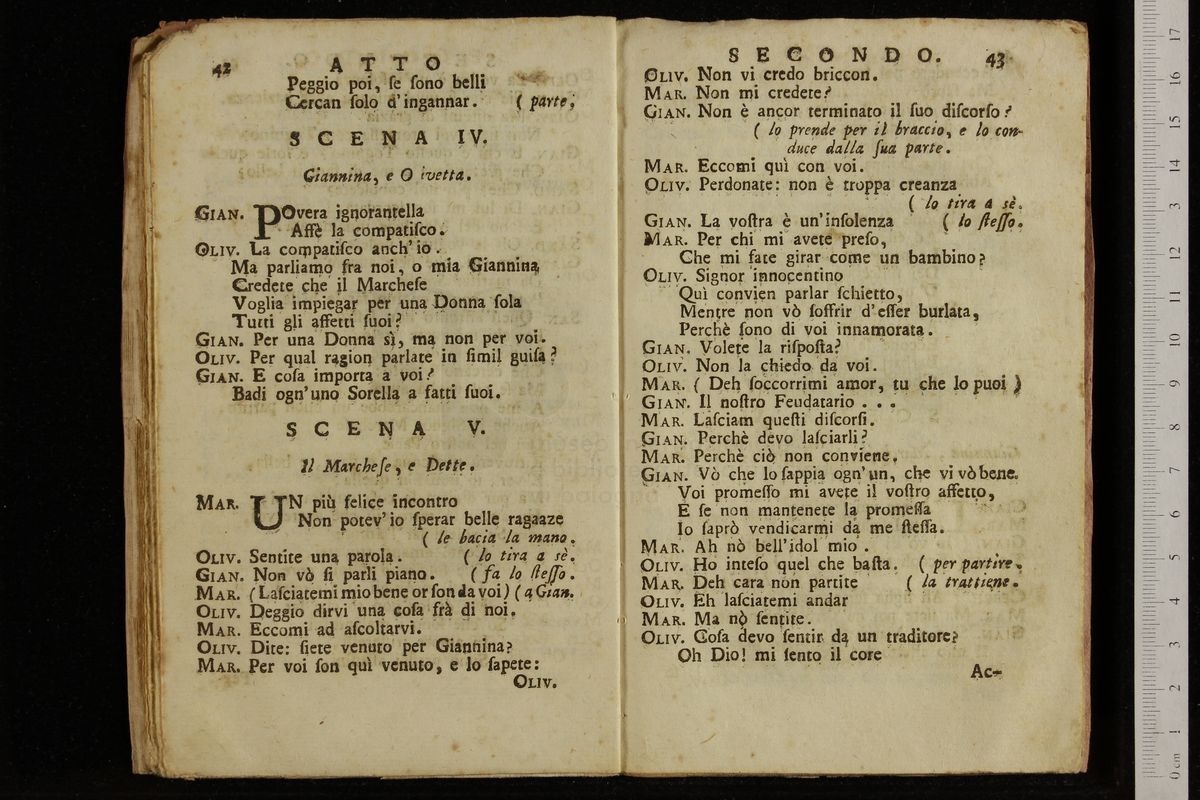 42 ATTO
Peggio poi, ſe ſono belli
Cercan ſolo d'ingannar. ( parte,
SCENA IV.
Giannina, e O ivetta.
GIAN. POvera ignorantella
Affè la compatiſco.
OLIV. La compatiſco anch' io.
Ma parliamo fra noi, o mia Giannina
Credete che il Marcheſe
Voglia impiegar per una Donna ſola
Tutti gli affetti ſuoi?
GIAN. Per una Donna sì, ma non per voi.
OLIV. Per qual ragion parlate in ſimil guiſa?
GIAN. E coſa importa a voi?
Badi ogn'uno Sorella a fatti ſuoi.
SCENA V.
Il Marcheſe, e Dette.
MAR. UN più felice incontro
Non potev' io ſperar belle ragaaze
( le bacia la mano.
OLIV. Sentite una parola. ( lo tira a sè.
GIAN. Non vò ſi parli piano. ( fa lo ſteſſo.
MAR. (Laſciatemi mio bene or ſon da voi) (a Gian.
OLIV. Deggio dirvi una coſa frà di noi.
MAR. Eccomi ad aſcoltarvi.
OLIV. Dite: ſiete venuto per Giannina?
MAR. Per voi ſon quì venuto, e lo ſapete:
OLIV.
SECONDO. 43
OLIV. Non vi credo briccon.
MAR. Non mi credete?
GIAN. Non è ancor terminato il ſuo diſcorſo?
( lo prende per il braccio, e lo con-
duce dalla ſua parte.
MAR. Eccomi quì con voi.
OLIV. Perdonate: non è troppa creanza
( lo tira a sè.
GIAN. La voſtra è un'inſolenza ( lo ſteſſo.
MAR. Per chi mi avete preſo,
Che mi fate girar come un bambino?
OLIV. Signor innocentino
Quì convien parlar ſchietto,
Mentre non vò ſoffrir d'eſſer burlata,
Perchè ſono di voi innamorata.
GIAN. Volete la riſpoſta?
OLIV. Non la chiedo da voi.
MAR. ( Deh ſoccorrimi amor, tu che lo puoi )
GIAN. Il noſtro Feudatario . . .
MAR. Laſciam queſti diſcorſi.
GIAN. Perchè devo laſciarli?
MAR. Perchè ciò non conviene.
GIAN. Vò che lo ſappia ogn'un, che vi vò bene.
Voi promeſſo mi avete il voſtro affetto,
E ſe non mantenete la promeſſa
Io ſaprò vendicarmi da me ſteſſa.
MAR. Ah nò bell'idol mio .
OLIV. Ho inteſo quel che baſta. ( per partire.
MAR. Deh cara non partite ( la trattiene.
OLIV. Eh laſciatemi andar
MAR. Ma nò ſentite.
OLIV. Coſa devo ſentir da un traditore?
Oh Dio! mi ſento il core
Ac-
0 cm 1 2 3 4 5 6 7 8 9 10 11 12 3 14 15 16 17